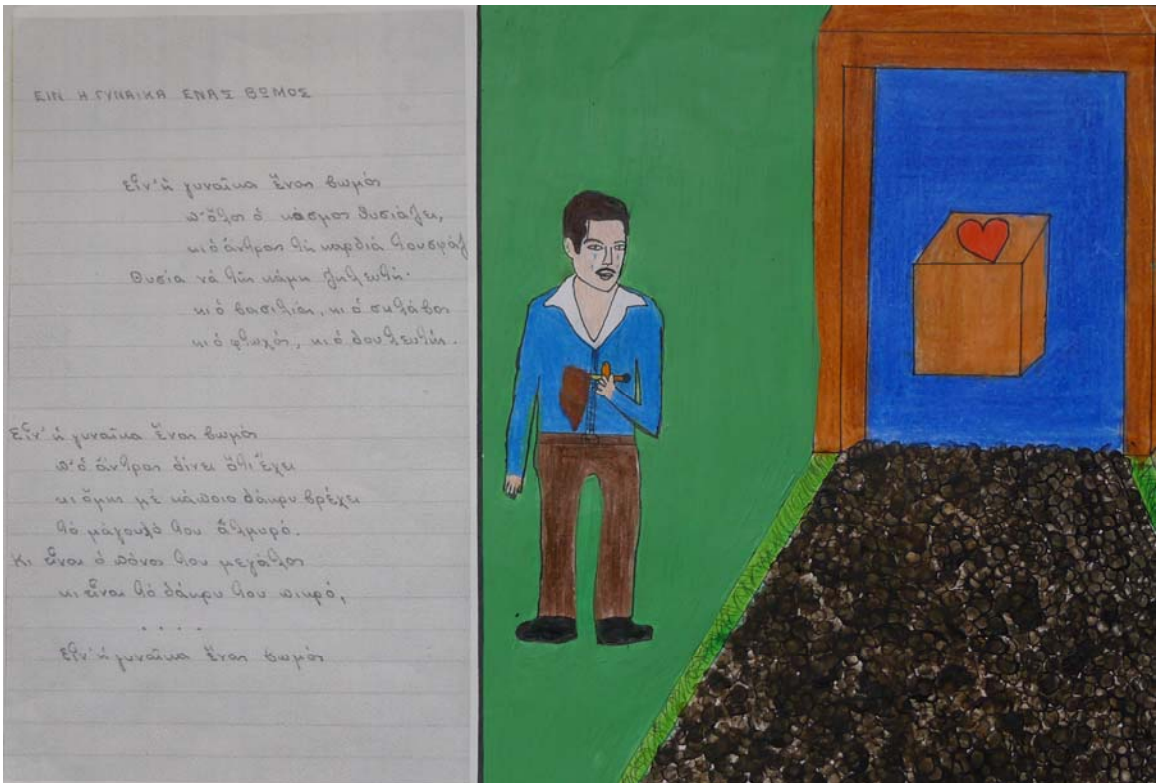 ΕΙΝ Η ΓΥΝΑΙΚΑ ΕΝΑΣ ΒΩΜΟΣ
Εἶν' ἡ γυναῖκα ἕνας βωμός
π' ὅλος ὁ κόσμος θυσιάζει,
κι ὁ ἄντρας τὴ καρδιά του σφάζ
θυσία νά τὴν κάμη ζηλευτή·
κι ὁ βασιλιάς, κι ὁ σκλάβος
κι ὁ φτωχός, κι ὁ δουλευτής.
Εἶν' ἡ γυναῖκα ἕνας βωμός
π' ὁ ἄντρας δίνει ὅτι ἔχει
κι ὅμως μέ κάποιο δάκρυ βρέχει
τό μάγουλό του ἁλμυρό.
Κι εἶναι ὁ πόνος του μεγάλος
κι εἶναι τό δάκρυ του πικρό,
. . . .
Εἶν' ἡ γυναῖκα ἕνας βωμός